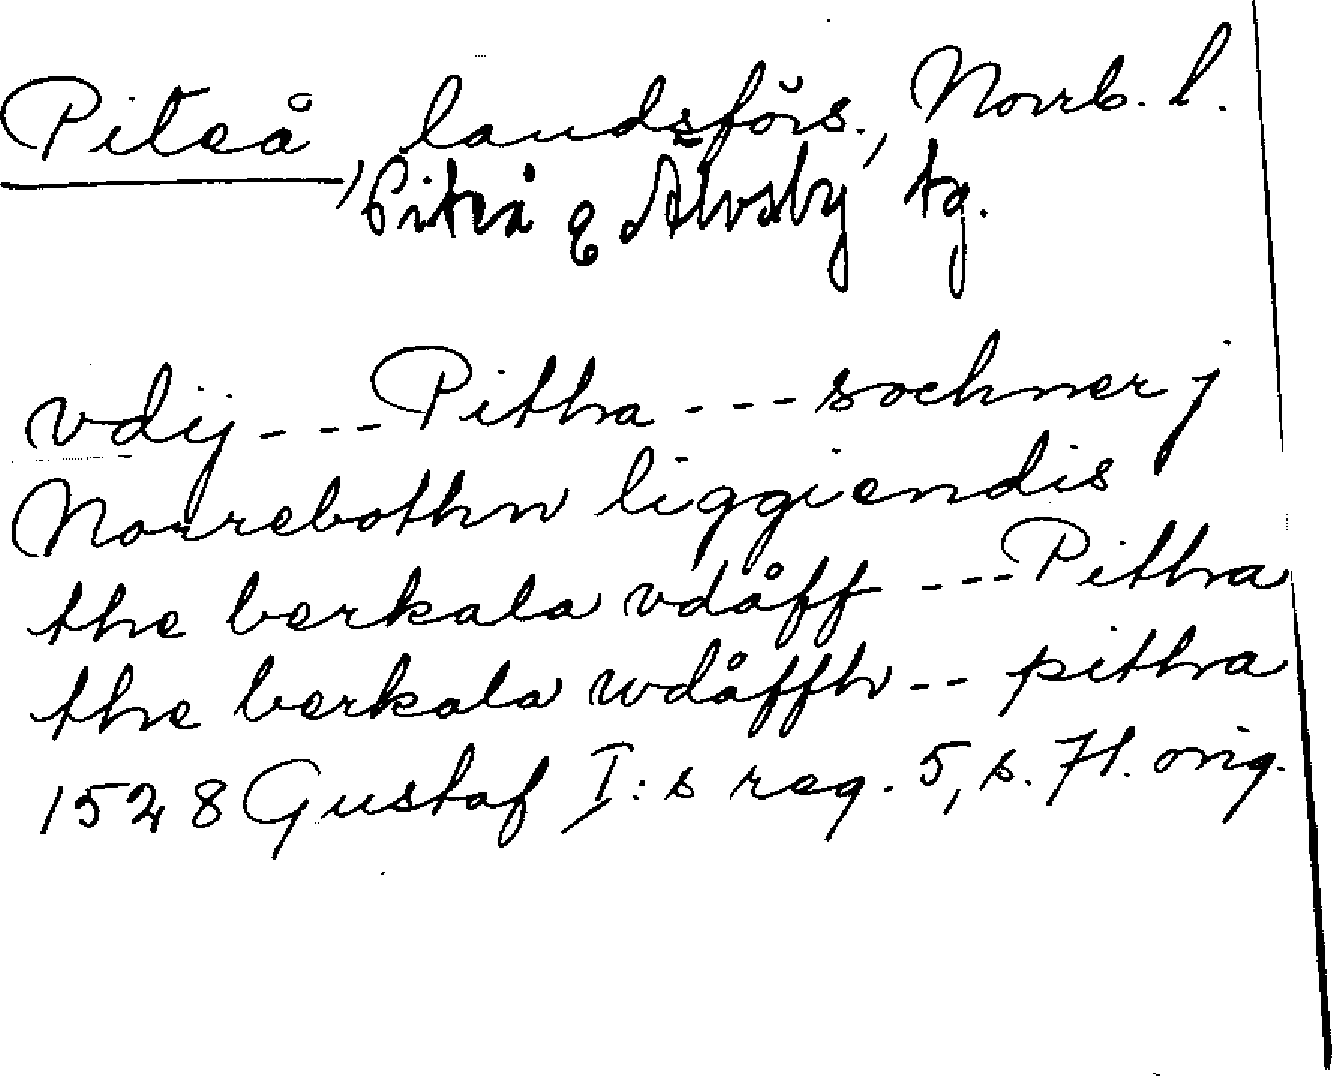 Piteå landsförs., Norrb. l.
, Piteå & Älvsby tg.
vdij --- Pitha --- sochner j
Norrebothn liggiendis
the berkala vdåff --- Pitha
the berkala wdåffh -- pitha
1528 Gustaf I:s reg. 5, s. 71. orig.